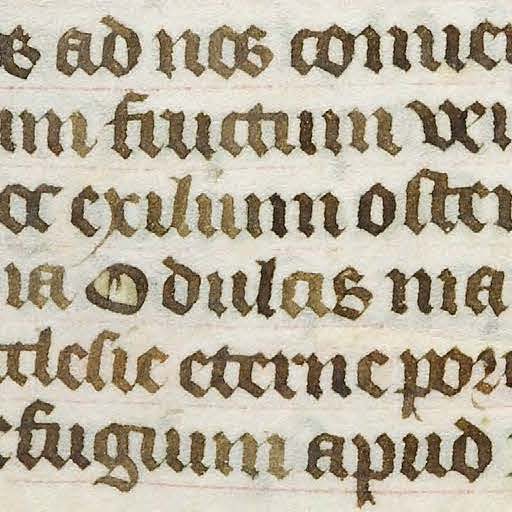 s ad nos conuer
um fructum ven
oc exilium osten
ia O dulcis ma
cclesie eterne por
efugium apud